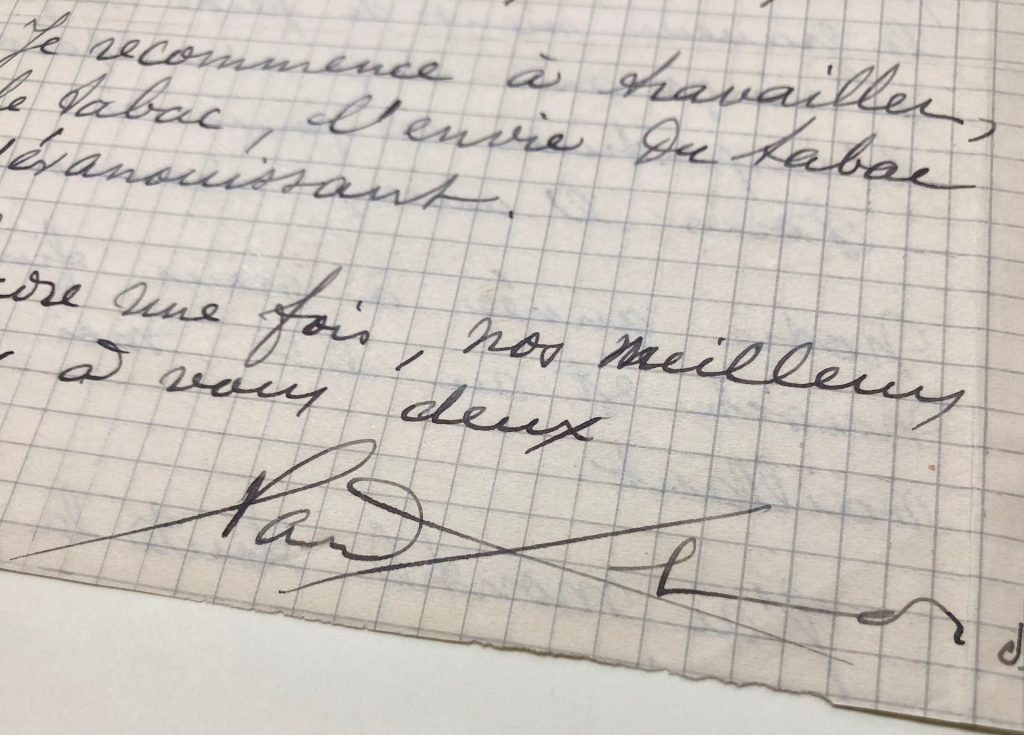 Je recommence à travailler,
le tabac, l'envie du tabac
évanouissant.
core une fois, nos meilleurs
à vous deux
Paul